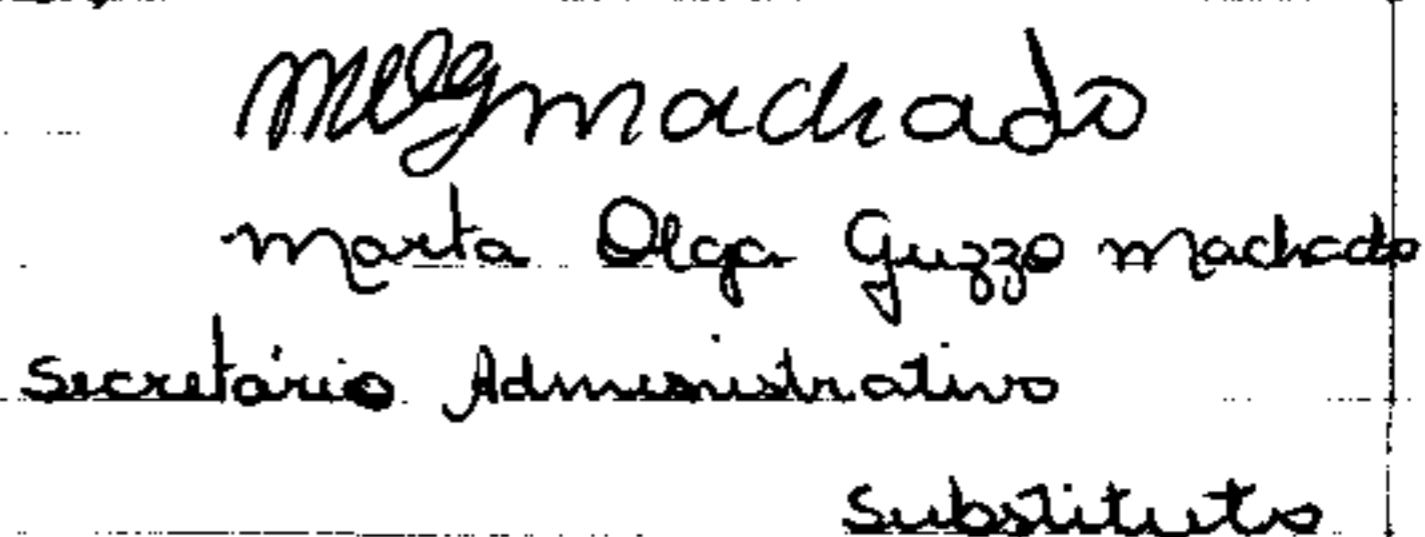 MOGMachado
Marta Olga Guzzo Machado
Secretário Administrativo
Substituto